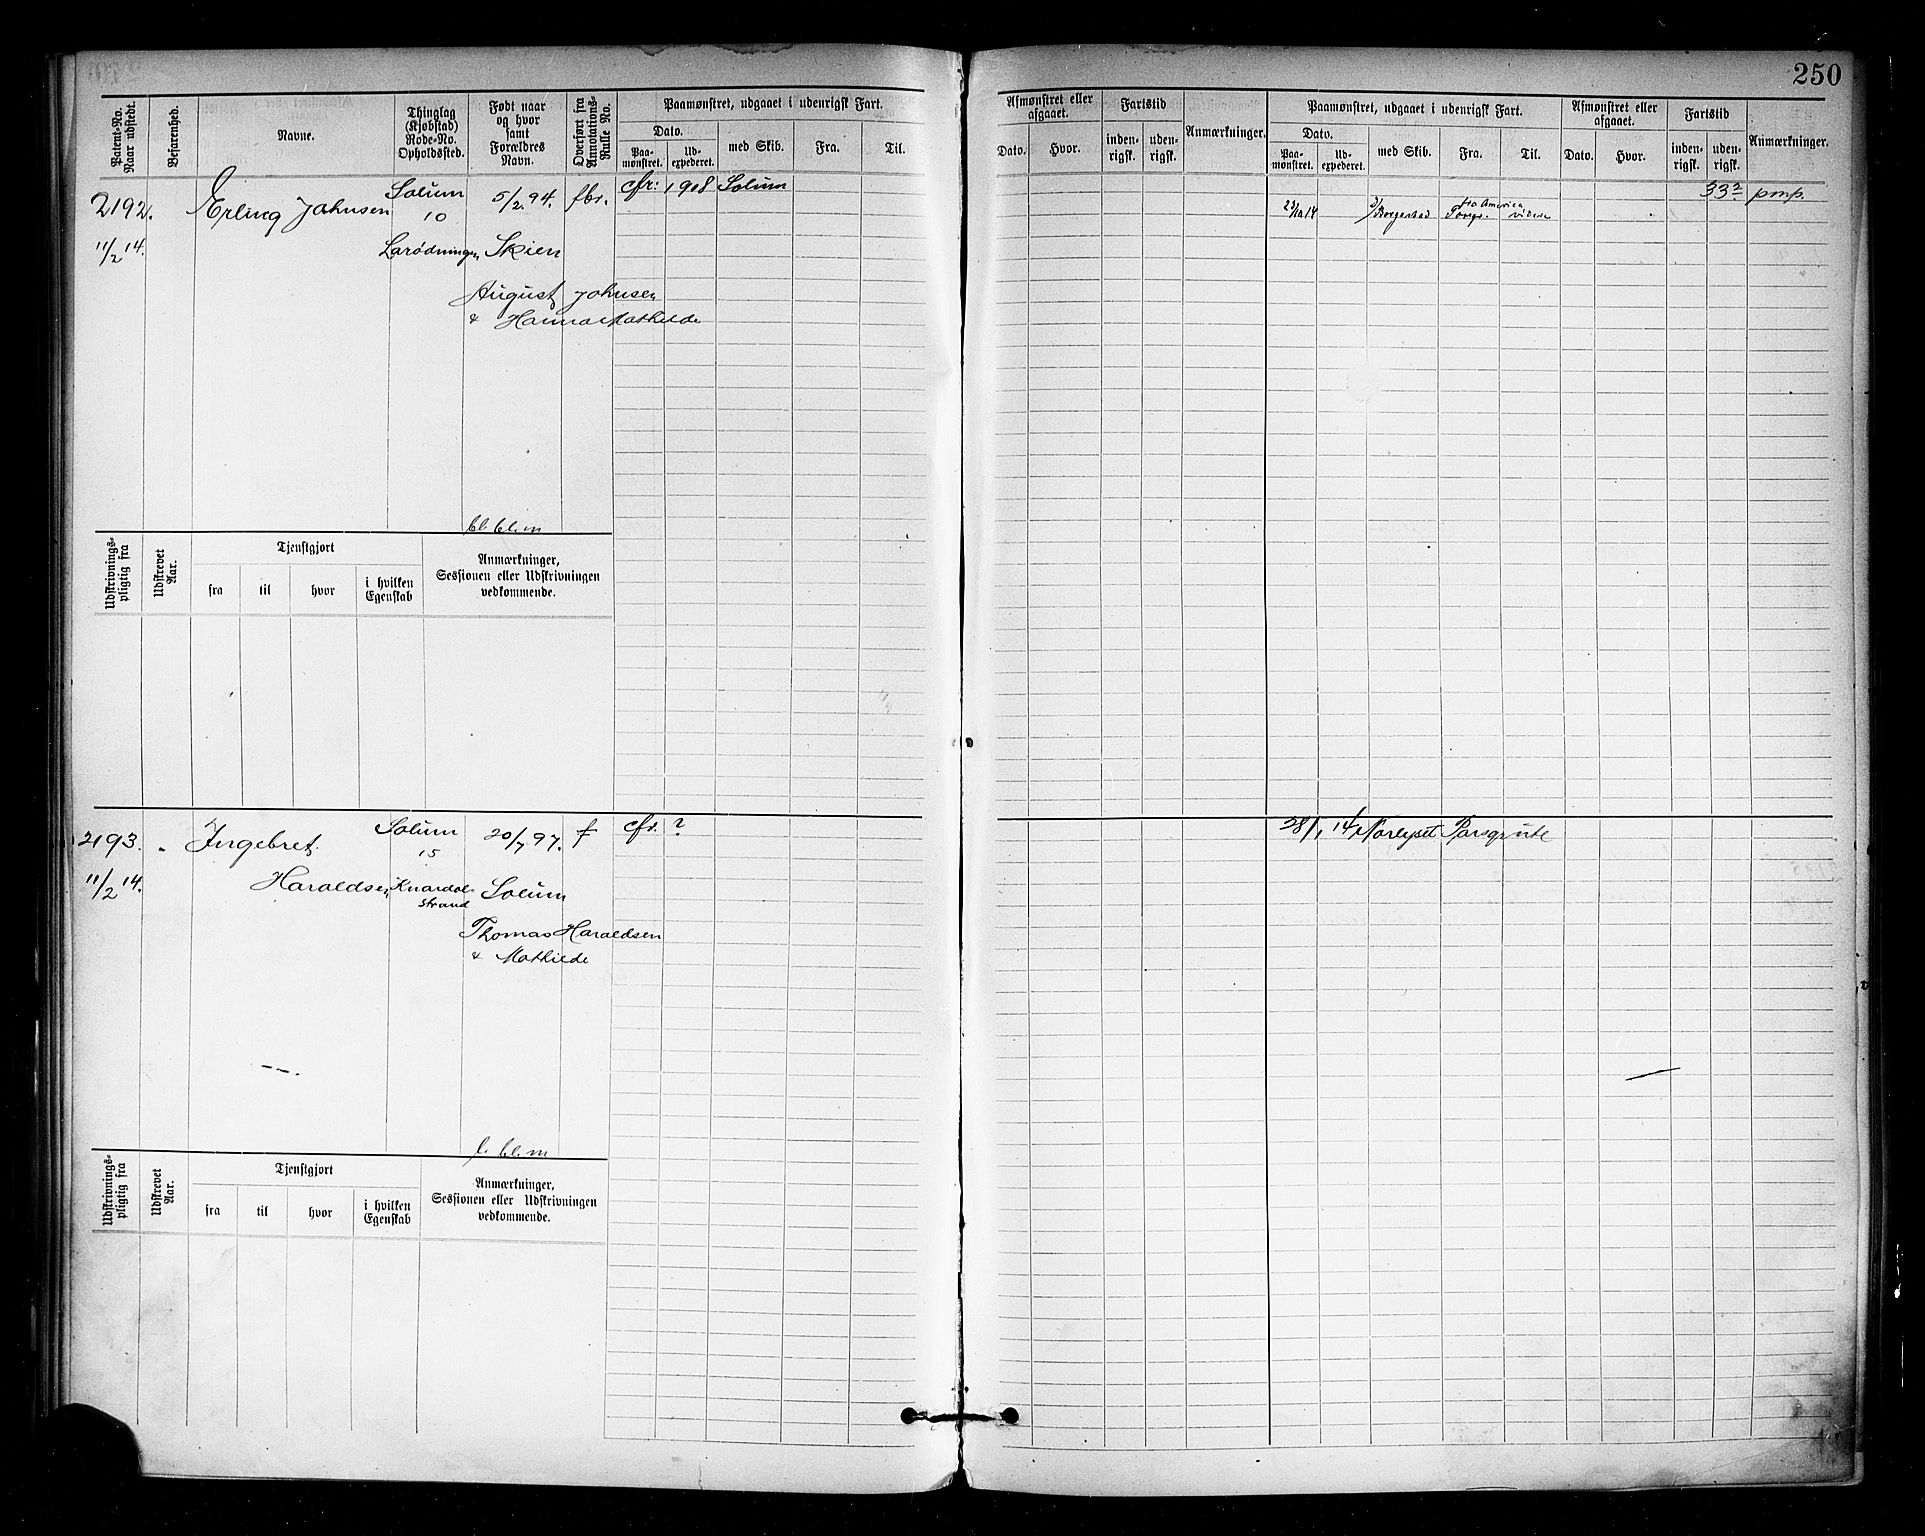 250
Patent-No. Naar udstedt.
Befarenhed.
Navne.
Thinglag (Kjøbstad) Rode-No. Opholdssted.
Født naar og hvor samt Forældres Navn.
Overført fra Annotations-Rulle No.
Paamønstret, udgaaet i udenrigsk Fart.
Dato.
Paa-mønstret.
Ud-expederet.
med Skib.
Fra.
Til.
Afmønstret eller afgaaet.
Dato.
Hvor.
Fartstid
inden-rigsk.
uden-rigsk.
Anmærkninger.
Paamønstret, udgaaet i udenrigsk Fart.
Dato.
Paa-mønstret.
Ud-expederet.
med Skib.
Fra.
Til.
Afmønstret eller afgaaet.
Dato.
Hvor.
Fartstid
inden-rigsk.
uden-rigsk.
Anmærkninger.
2192. Erling Johnsen Solum 5/2.94. fbr. cfr: 1908 Solum
10
11/2 14. Skien
August Johnsen
& Hanna Mathilde
33 pmp.
fra America
Borgestad Porsgr. videre
bl. bl. m
Udskrivnings-pligtig fra
Udskrevet Aar.
Tjenstgjort
fra
til
hvor
i hvilken Egenskab
Anmærkninger,
Sessionen eller Udskrivningen
vedkommende.
2193. Ingebret Solum 20/7 97. f cfr. ?
15
11/2 14. Haraldsen Knardal- Solum
strand
Thomas Haraldsen
& Mathilde
28/1 14 Porsgrute
l. bl. m
Udskrivnings-pligtig fra
Udskrevet Aar.
Tjenstgjort
fra
til
hvor
i hvilken Egenskab
Anmærkninger,
Sessionen eller Udskrivningen
vedkommende.